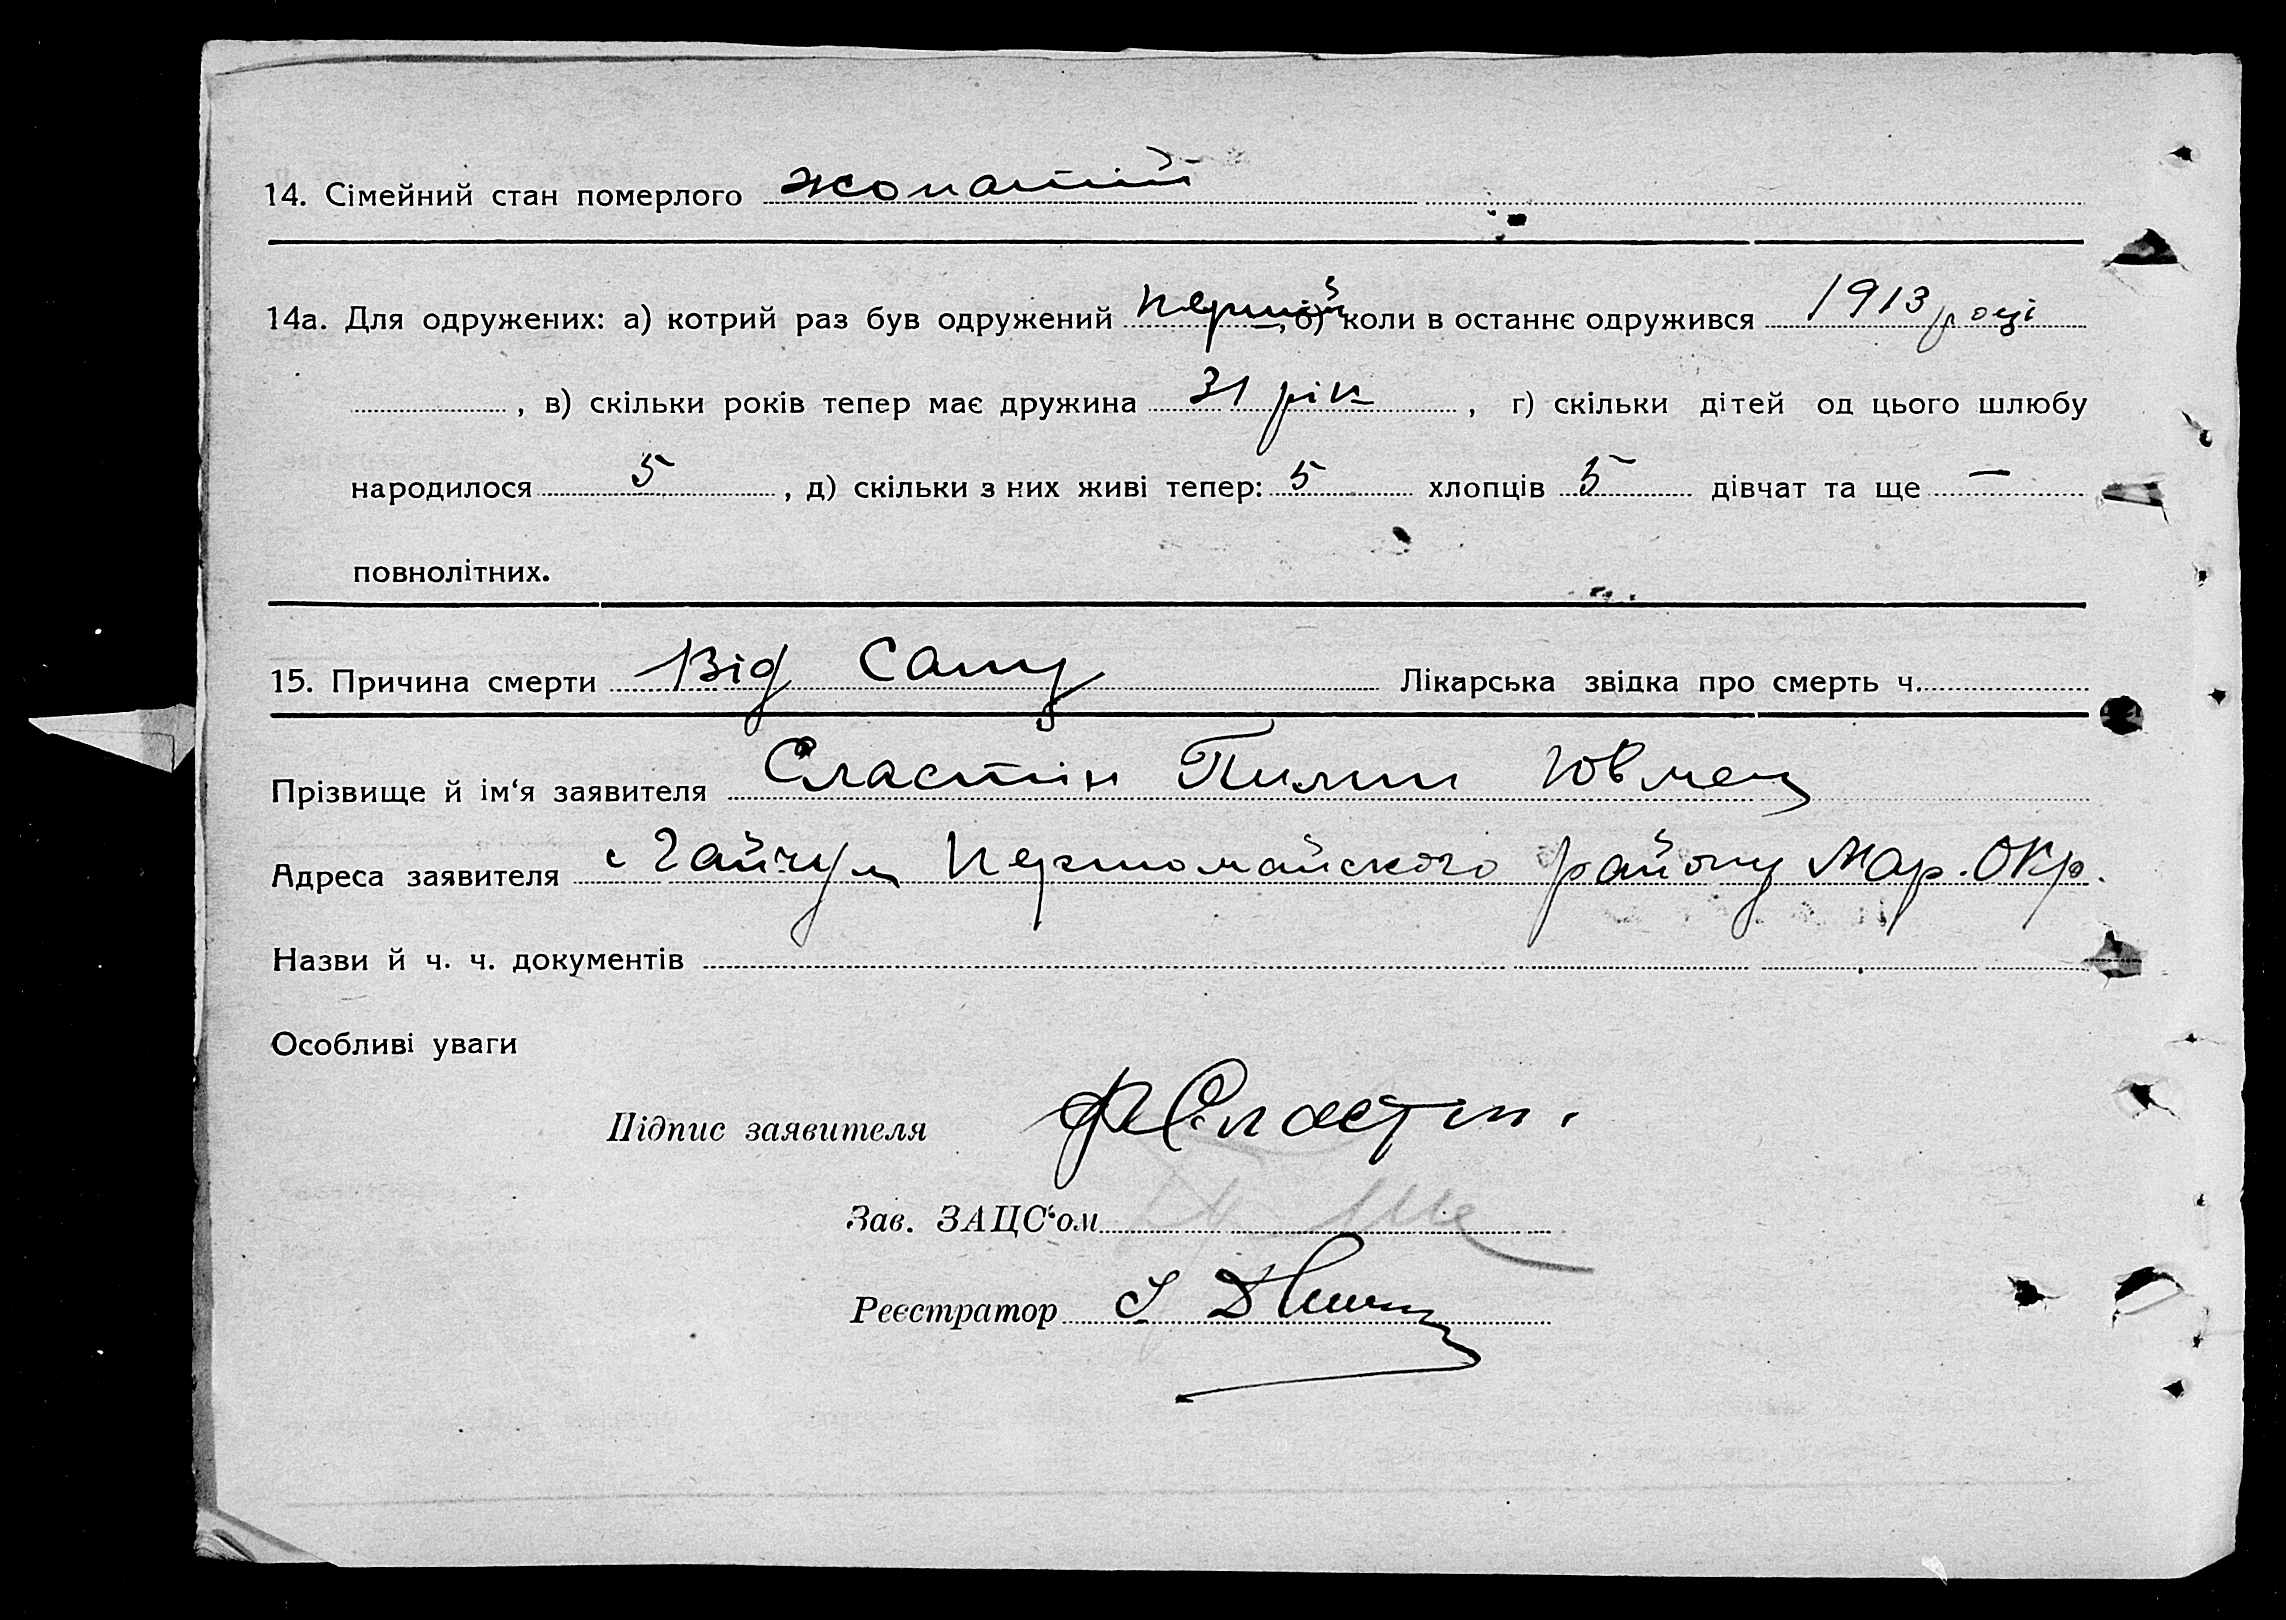 14. Сімейний стан померлого жонатий
14а. Для одружених: а) котрий раз був одружений перший, б) коли в останнє одружився 1913 році
, в) скільки років тепер має дружина 31 рік, г) скільки дітей од цього шлюбу
народилося 5, д) скільки з них живі тепер: 5 хлопців 5 дівчат та ще —
повнолітних.
15. Причина смерти Від Сапу Лікарська звідка про смерть ч.
Прізвище й ім‘я заявителя Сластін Пилип
Адреса заявителя с Гайчул Першомайского району Мар. Окр.
Назви й ч. ч. документів
Особливі уваги
Підпис заявителя Сластин.
Зав. ЗАЦС‘ом
Реєстратор